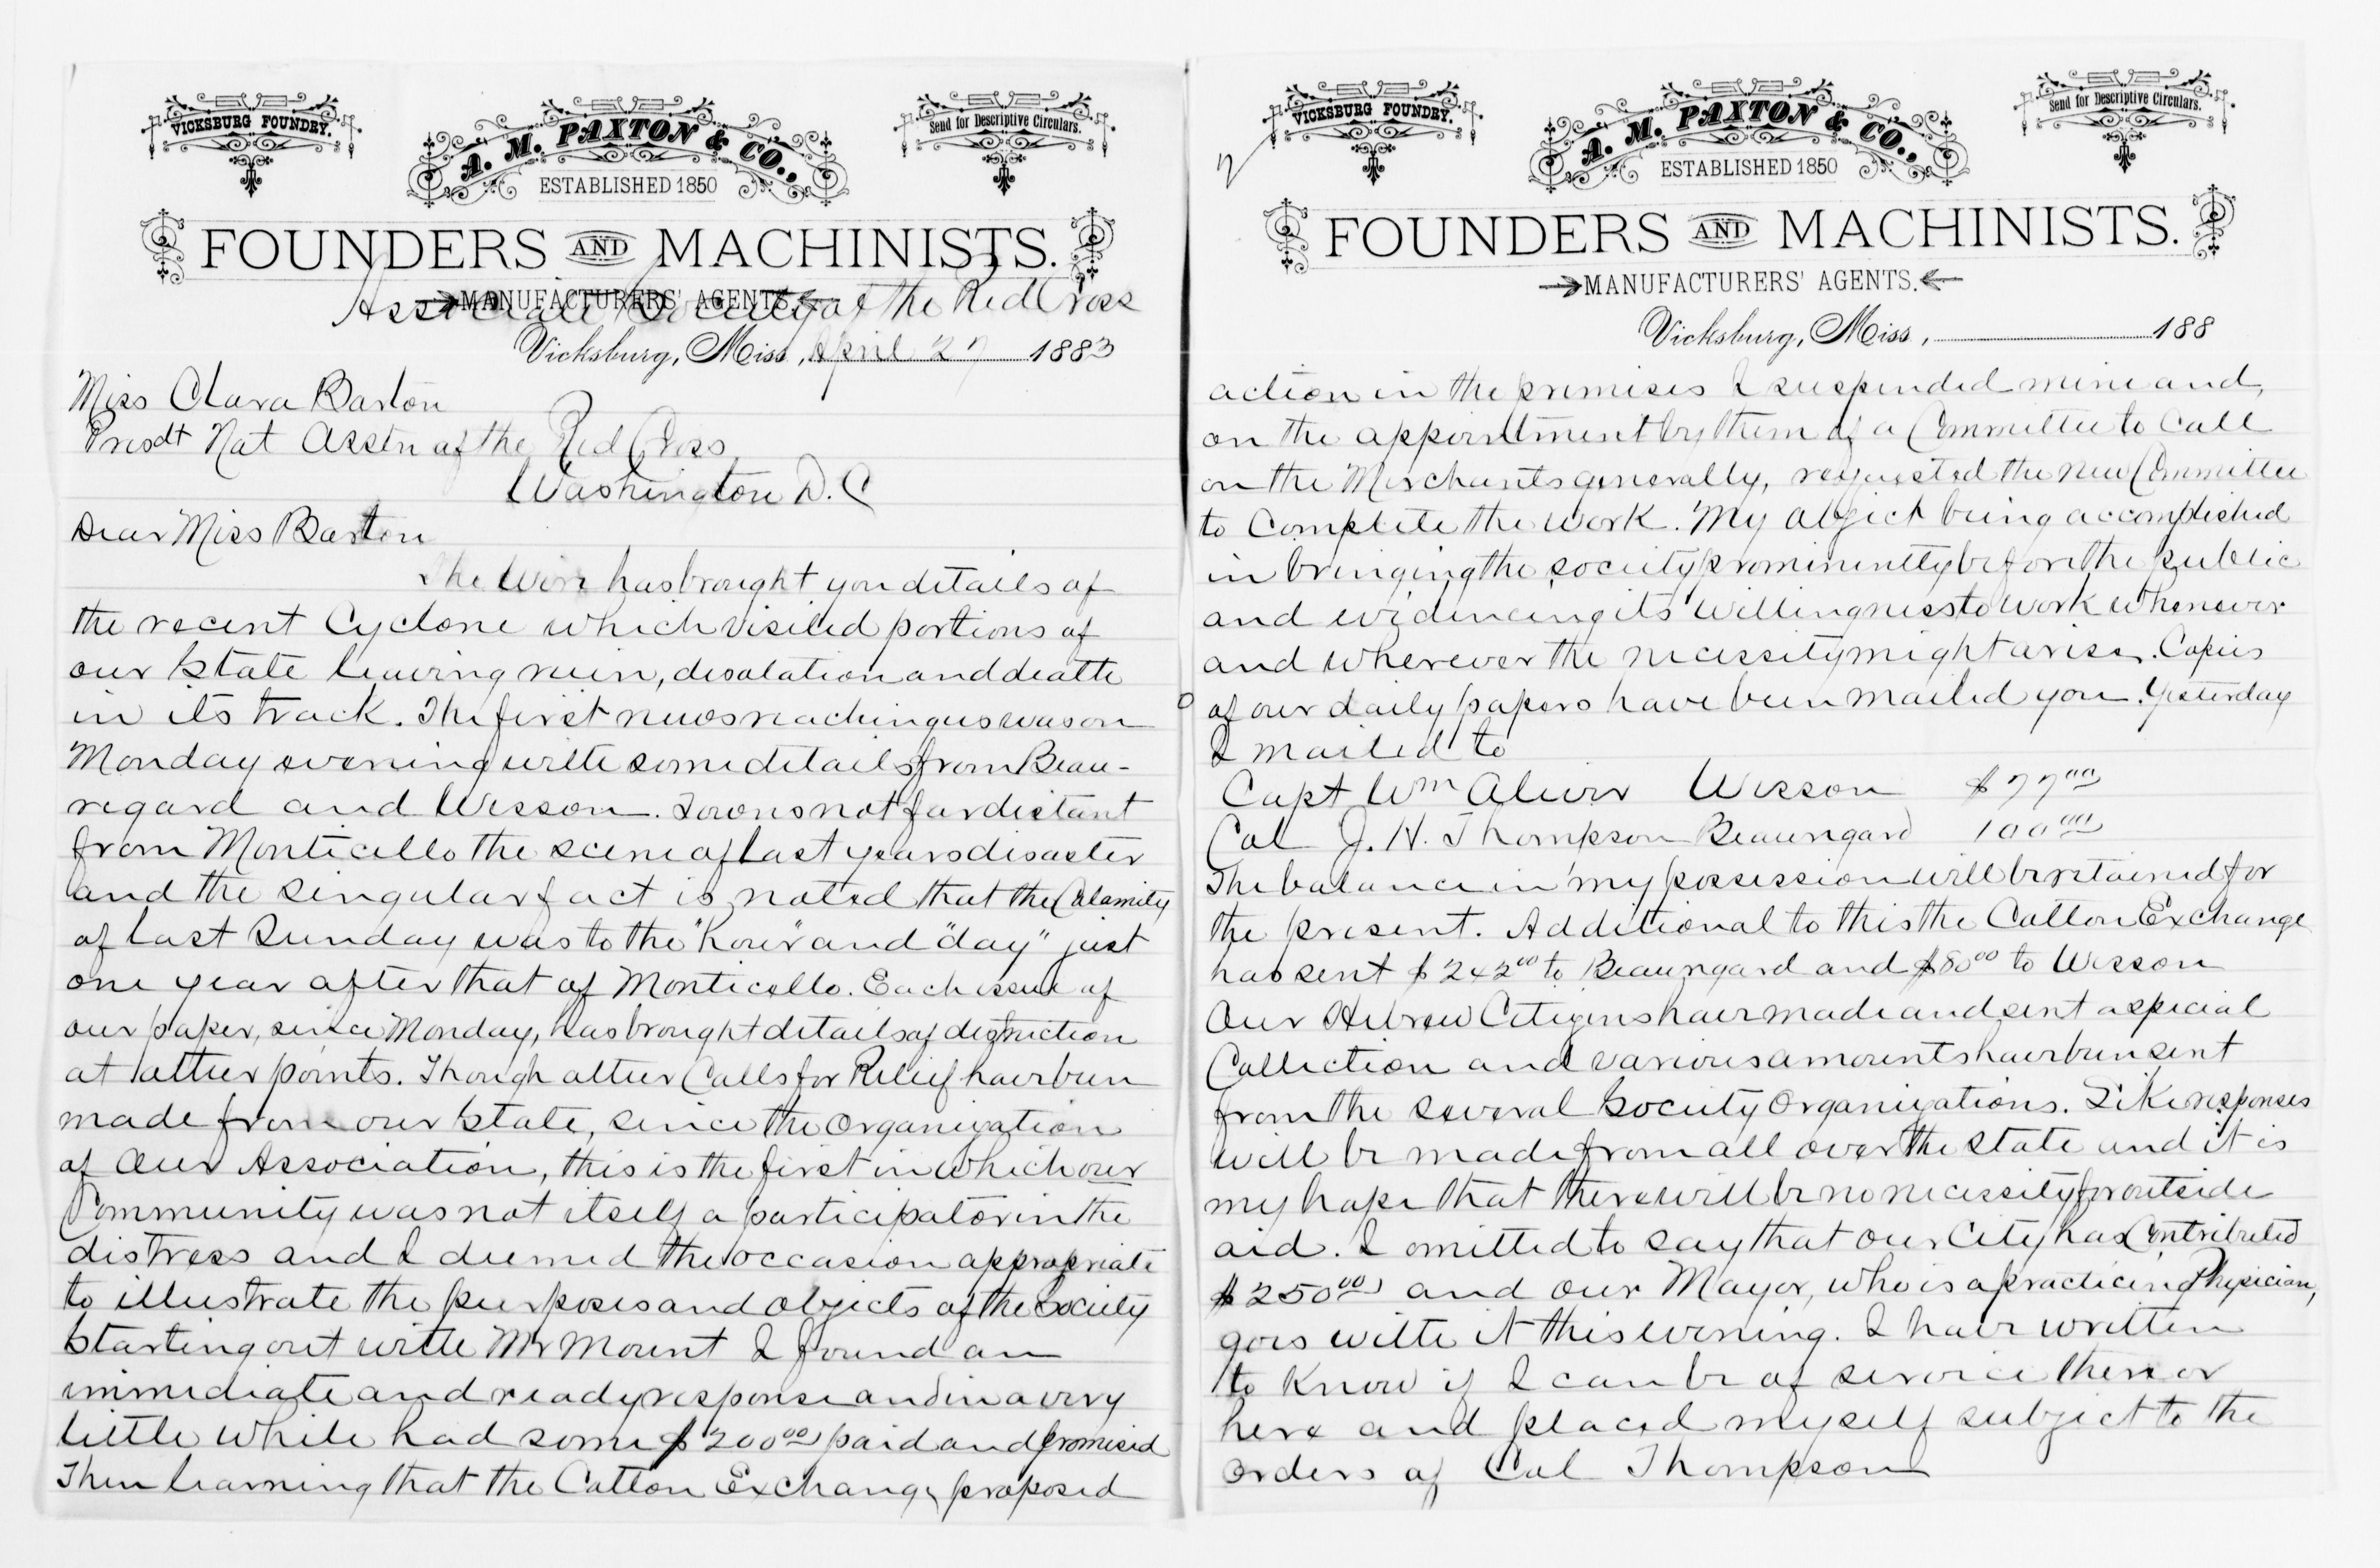 VICKSBURG FOUNDRY.
A. M. PAXTON & CO.,
ESTABLISHED 1850
Send for Descriptive Circulars.
FOUNDERS AND MACHINISTS.
MANUFACTURERS' AGENTS.
Associate Society of the Red Cross
Vicksburg, Miss., April 27 1883
Miss Clara Barton
Presdt Nat Asstn of the Red Cross
Washington D. C
Dear Miss Barton
The Wire has brought you details of
the recent Cyclone which visited portions of
our State leaving ruin, desolation and death
in its track. The first news reaching us was on
Monday evening with some details from Beau-
regard and Wesson. Towns not far distant
from Monticello the scene of last years disaster
and the singular fact is noted that the Calamity
of last Sunday was to the "hour" and "day" just
one year after that of Monticello. Each issue of
our paper, since Monday, has brought details of destruction
at other points. Though other Calls for Relief have been
made from our State, since the Organization
of Our Association, this is the first in which our
Community was not itself a participator in the
distress and I deemed the occasion appropriate
to illustrate the purposes and objects of the Society
Starting out with Mr Mount I found an
immediate and ready response and in a very
little while had some $200 00 paid and promised
Then learning that the Cotton Exchange proposed
2
VICKSBURG FOUNDRY.
A. M. PAXTON & CO.,
ESTABLISHED 1850
Send for Descriptive Circulars.
FOUNDERS AND MACHINISTS.
MANUFACTURERS' AGENTS.
Vicksburg, Miss., 188
action in the premises I suspended mine and,
on the appointment by them of a Committee to Call
on the Merchants generally, requested the new Committee
to Complete the work. My object being accomplished
in bringing the society prominently before the public
and evidencing its willingness to work whenever
and wherever the necessity might arise. Copies
of our daily papers have been mailed you. Yesterday
I mailed to
Capt Wm Oliver Wesson $77 00
Col J. H. Thompson Beauregard 100 00
The balance in my possession will be retained for
the present. Additional to this the Cotton Exchange
has sent $242 00 to Beauregard and $80 00 to Wesson
Our Hebrew Citizens have made and sent a special
Collection and various amounts have been sent
from the several Society Organizations. Like responses
will be made from all over the State and it is
my hope that there will be no necessity for outside
aid. I omitted to say that our City has Contributed
$250 00 and our Mayor, who is a practicing Physician,
goes with it this evening. I have written
to know if I can be of service there or
here and placed myself subject to the
Orders of Col Thompson